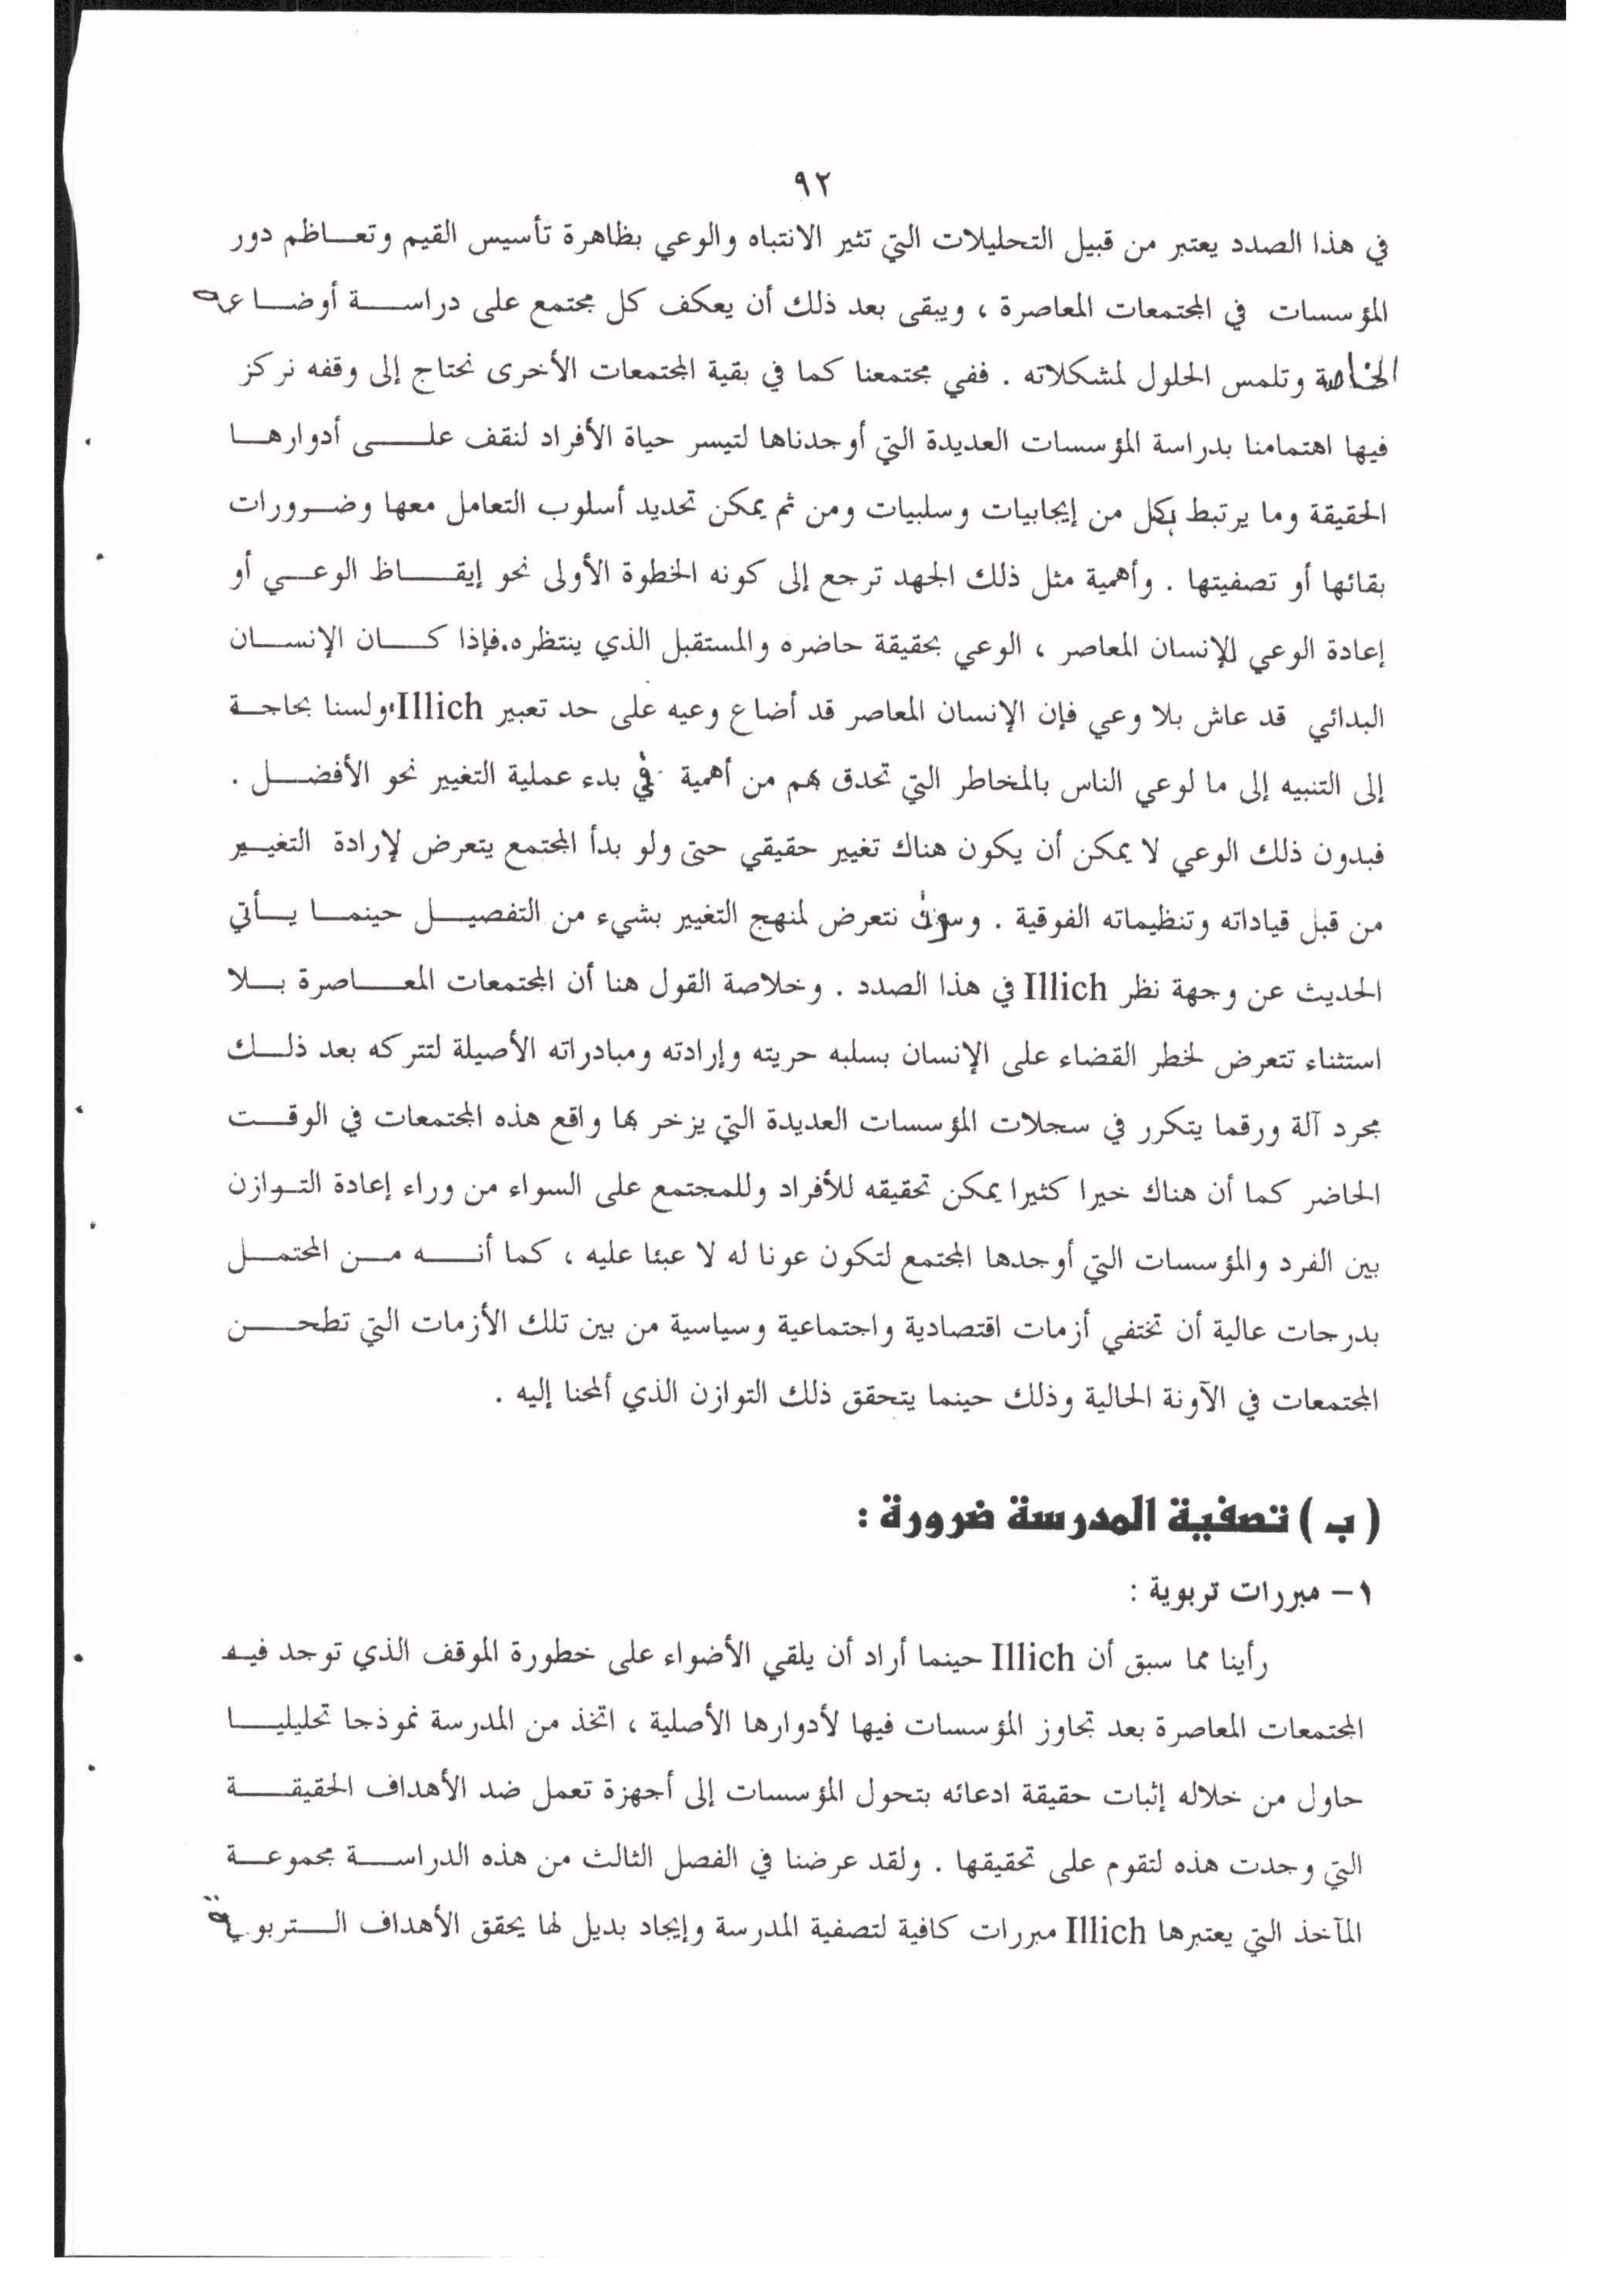 ٩٢
في هذا الصدد يعتبر من قبيل التحليلات التي تثير الانتباه والوعي بظاهرة تأسيس القيم وتعاظم دور
المؤسسات في المجتمعات المعاصرة ، ويبقى بعد ذلك أن يعكف كل مجتمع على دراسة أوضاعه
الخاصة وتلمس الحلول لمشكلاته . ففي مجتمعنا كما في بقية المجتمعات الأخرى نحتاج إلى وقفه نركز
فيها اهتمامنا بدراسة المؤسسات العديدة التي أوجدناها لتيسر حياة الأفراد لنقف على أدوارها
الحقيقة وما يرتبط بكل من إيجابيات وسلبيات ومن ثم يمكن تحديد أسلوب التعامل معها وضرورات
بقائها أو تصفيتها . وأهمية مثل ذلك الجهد ترجع إلى كونه الخطوة الأولى نحو إيقاظ الوعي أو
إعادة الوعي للإنسان المعاصر ، الوعي بحقيقة حاضره والمستقبل الذي ينتظره.فإذا كان الإنسان
البدائي قد عاش بلا وعي فإن الإنسان المعاصر قد أضاع وعيه على حد تعبير Illich، ولسنا بحاجة
إلى التنبيه إلى ما لوعي الناس بالمخاطر التي تحدق بهم من أهمية في بدء عملية التغيير نحو الأفضل .
فبدون ذلك الوعي لا يمكن أن يكون هناك تغيير حقيقي حتى ولو بدأ المجتمع يتعرض لإرادة التغيير
من قبل قياداته وتنظيماته الفوقية . وسوف نتعرض لمنهج التغيير بشيء من التفصيل حينما يأتي
الحديث عن وجهة نظر Illich في هذا الصدد . وخلاصة القول هنا أن المجتمعات المعاصرة بلا
استثناء تتعرض لخطر القضاء على الإنسان بسلبه حريته وإرادته ومبادراته الأصيلة لتتركه بعد ذلك
مجرد آلة ورقما يتكرر في سجلات المؤسسات العديدة التي يزخر بها واقع هذه المجتمعات في الوقت
الحاضر كما أن هناك خيرا كثيرا يمكن تحقيقه للأفراد وللمجتمع على السواء من وراء إعادة التوازن
بين الفرد والمؤسسات التي أوجدها المجتمع لتكون عونا له لا عبئا عليه ، كما أنه من المحتمل
بدرجات عالية أن تختفي أزمات اقتصادية واجتماعية وسياسية من بين تلك الأزمات التي تطحن
المجتمعات في الآونة الحالية وذلك حينما يتحقق ذلك التوازن الذي ألمحنا إليه .
( ب ) تصفية المدرسة ضرورة :
١- مبررات تربوية :
رأينا مما سبق أن Illich حينما أراد أن يلقي الأضواء على خطورة الموقف الذي توجد فيه
المجتمعات المعاصرة بعد تجاوز المؤسسات فيها لأدوارها الأصلية ، اتخذ من المدرسة نموذجا تحليليا
حاول من خلاله إثبات حقيقة ادعائه بتحول المؤسسات إلى أجهزة تعمل ضد الأهداف الحقيقة
التي وجدت هذه لتقوم على تحقيقها . ولقد عرضنا في الفصل الثالث من هذه الدراسة مجموعة
المآخذ التي يعتبرها Illich مبررات كافية لتصفية المدرسة وإيجاد بديل لها يحقق الأهداف التربوية